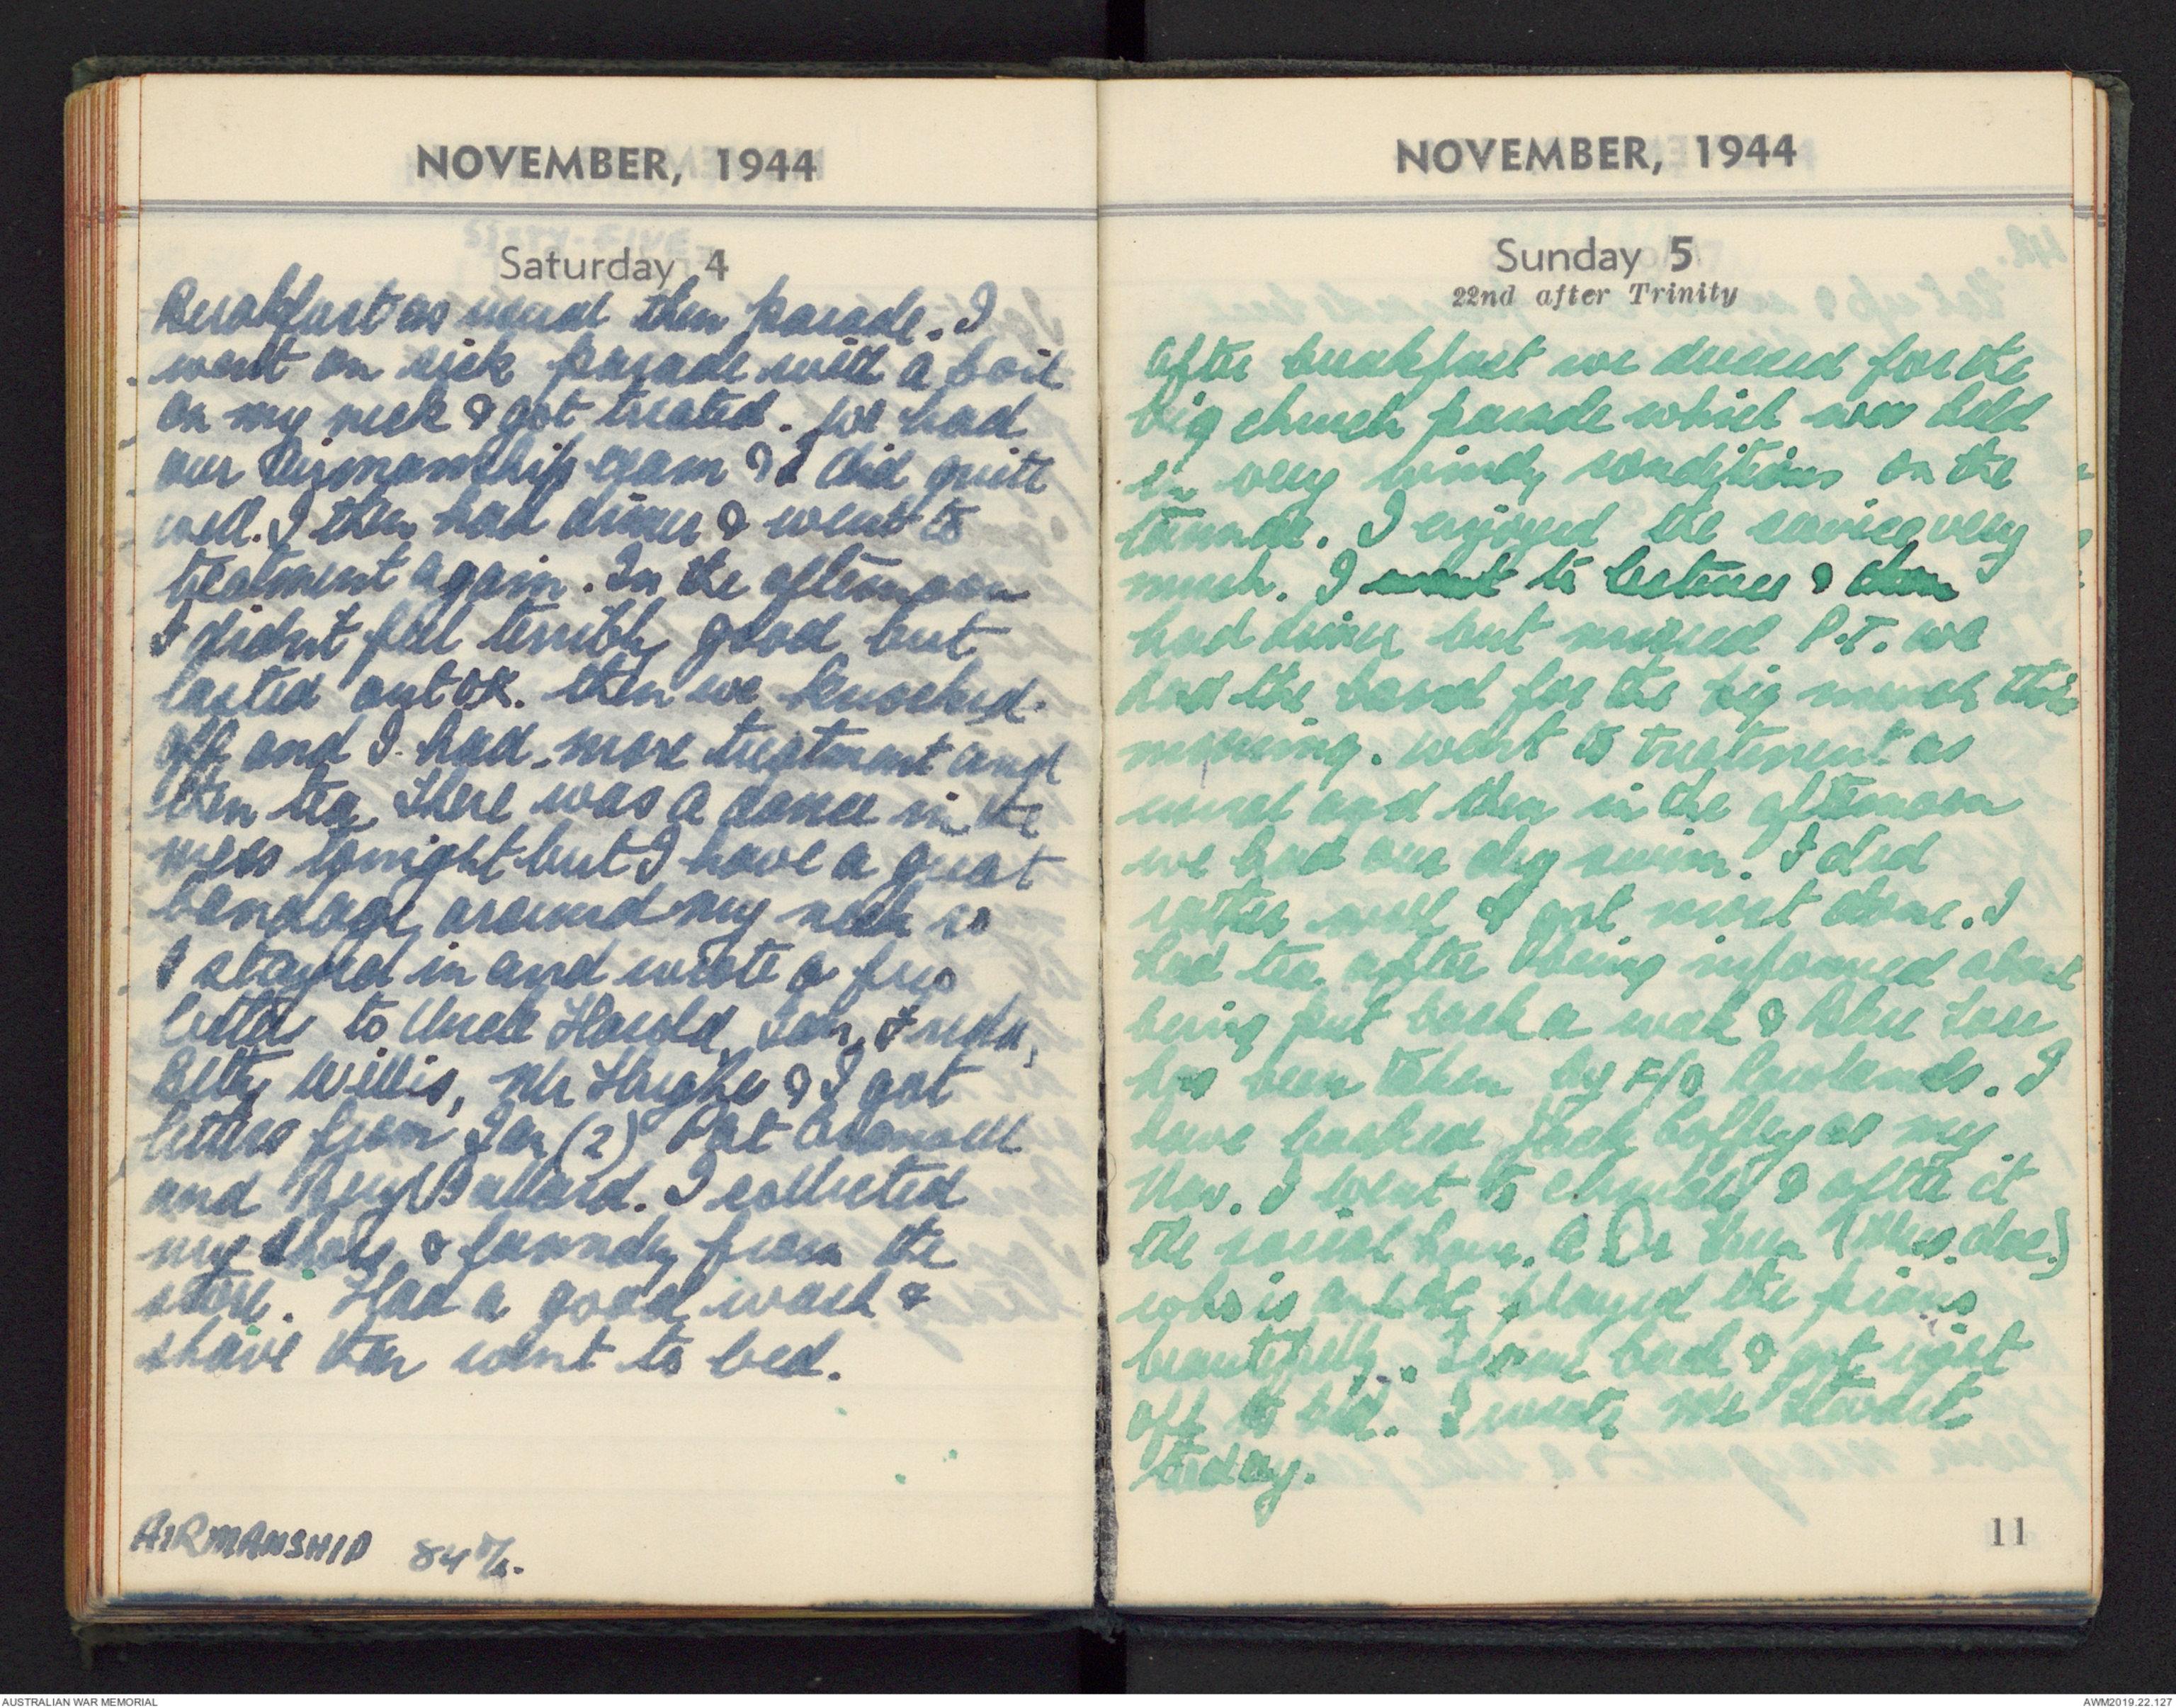 NOVEMBER, 1944
Saturday 4
Breakfast as usual then parade. I
went on sick parade with a boil
on my neck & got treated. We had
our Airmanship exam & I did quite
well. I then had dinner & went to
treatment again. In the afternoon
I didn't feel terribly good but
lasted out OK. then we knocked
off and I had more treatment and
then tea. There was a dance in the
mess tonight but I have a great
bandage around my neck so
I stayed in and wrote a few
letters to Uncle Harold, Ian,
Betty Willis, Mr Hughes & I got
letters from Ian (2) Pat
and Beryl Ballard. I collected
my shoes & laundry from the
store. Had a good wash &
shave then went to bed.
AIRMANSHIP 84%.
NOVEMBER, 1944
Sunday 5
22nd after Trinity
After breakfast we dressed for the
big church parade which was held
in very windy conditions on the
tarmac. I enjoyed the service very
much. I went to lectures & then
had dinner but missed P.T. we
had the band for the big march this
morning. Went to treatment as
usual and then in the afternoon
we had our dry swim. I did
rather well & got most done. I
had tea after being informed about
being put back a week & Blue
has been taken by F/O Rowlands. I
have Jack Coffey as my
Nav. I went to church & after it
the social hour. A Dr (Mus. doc.)
who is an played the piano
beautifully. I came back & got right
off to bed. I wrote Mr Stewart
today.
11
AUSTRALIAN WAR MEMORIAL
AWM2019.22.127